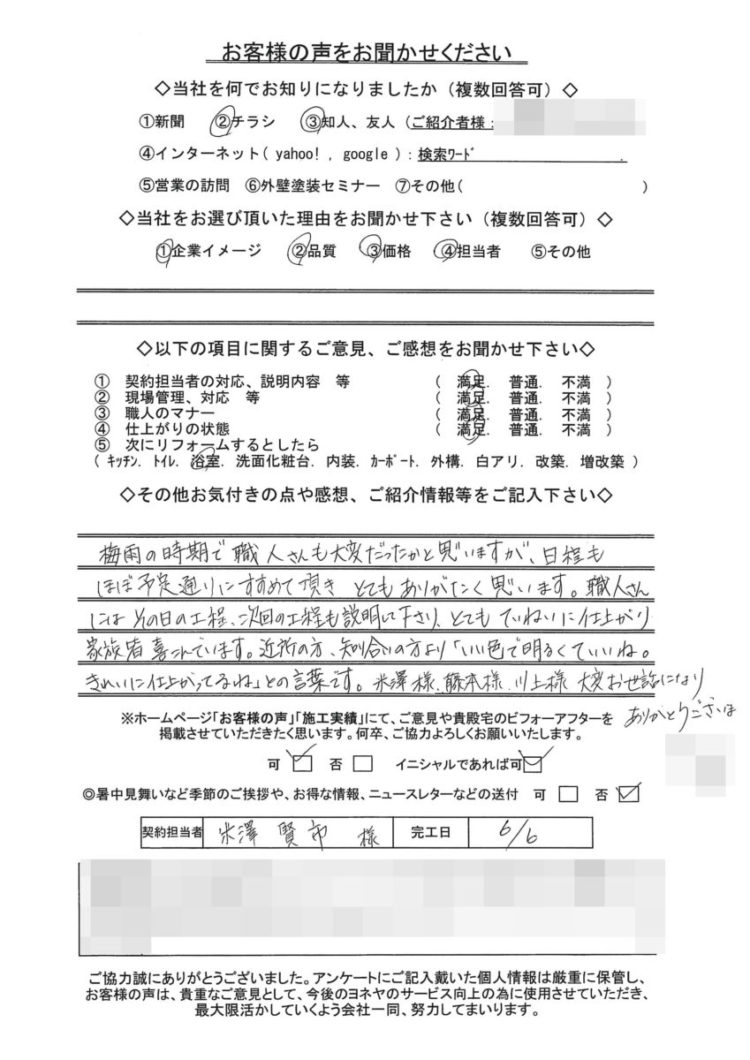 お客様の声をお聞かせください
◇当社を何でお知りになりましたか（複数回答可）◇
①新聞 ②チラシ ③知人、友人（ご紹介者様：
④インターネット( yahoo! , google )：検索ﾜｰﾄﾞ .
⑤営業の訪問 ⑥外壁塗装セミナー ⑦その他( )
◇当社をお選び頂いた理由をお聞かせ下さい（複数回答可）◇
①企業イメージ ②品質 ③価格 ④担当者 ⑤その他
◇以下の項目に関するご意見、ご感想をお聞かせ下さい◇
① 契約担当者の対応、説明内容 等 ( 満足. 普通. 不満 )
② 現場管理、対応 等 ( 満足. 普通. 不満 )
③ 職人のマナー ( 満足. 普通. 不満 )
④ 仕上がりの状態 ( 満足. 普通. 不満 )
⑤ 次にリフォームするとしたら
( ｷｯﾁﾝ. ﾄｲﾚ. 浴室. 洗面化粧台. 内装. ｶｰﾎﾟｰﾄ. 外構. 白アリ. 改築. 増改築 )
◇その他お気付きの点や感想、ご紹介情報等をご記入下さい◇
梅雨の時期で職人さんも大変だったかと思いますが、日程も
ほぼ予定通りにすすめて頂き とてもありがたく思います。職人さん
には その日の工程、次回の工程も説明して下さり、とても ていねいに仕上がり
家族皆 喜こんでいます。近所の方、知り合いの方より「いい色で明るくていいね。
きれいに仕上がってるね」との言葉です。米澤様、藤本様、川上様 大変お世話になり
ありがとうございま
※ホームページ「お客様の声」「施工実績」にて、ご意見や貴殿宅のビフォーアフターを
掲載させていただきたく思います。何卒、ご協力よろしくお願いいたします。
可 □ 否 □ イニシャルであれば可□
◎暑中見舞いなど季節のご挨拶や、お得な情報、ニュースレターなどの送付 可 □ 否 □
契約担当者 米澤 賢市 様 完工日 6/6
ご協力誠にありがとうございました。アンケートにご記入戴いた個人情報は厳重に保管し、
お客様の声は、貴重なご意見として、今後のヨネヤのサービス向上の為に使用させていただき、
最大限活かしていくよう会社一同、努力してまいります。